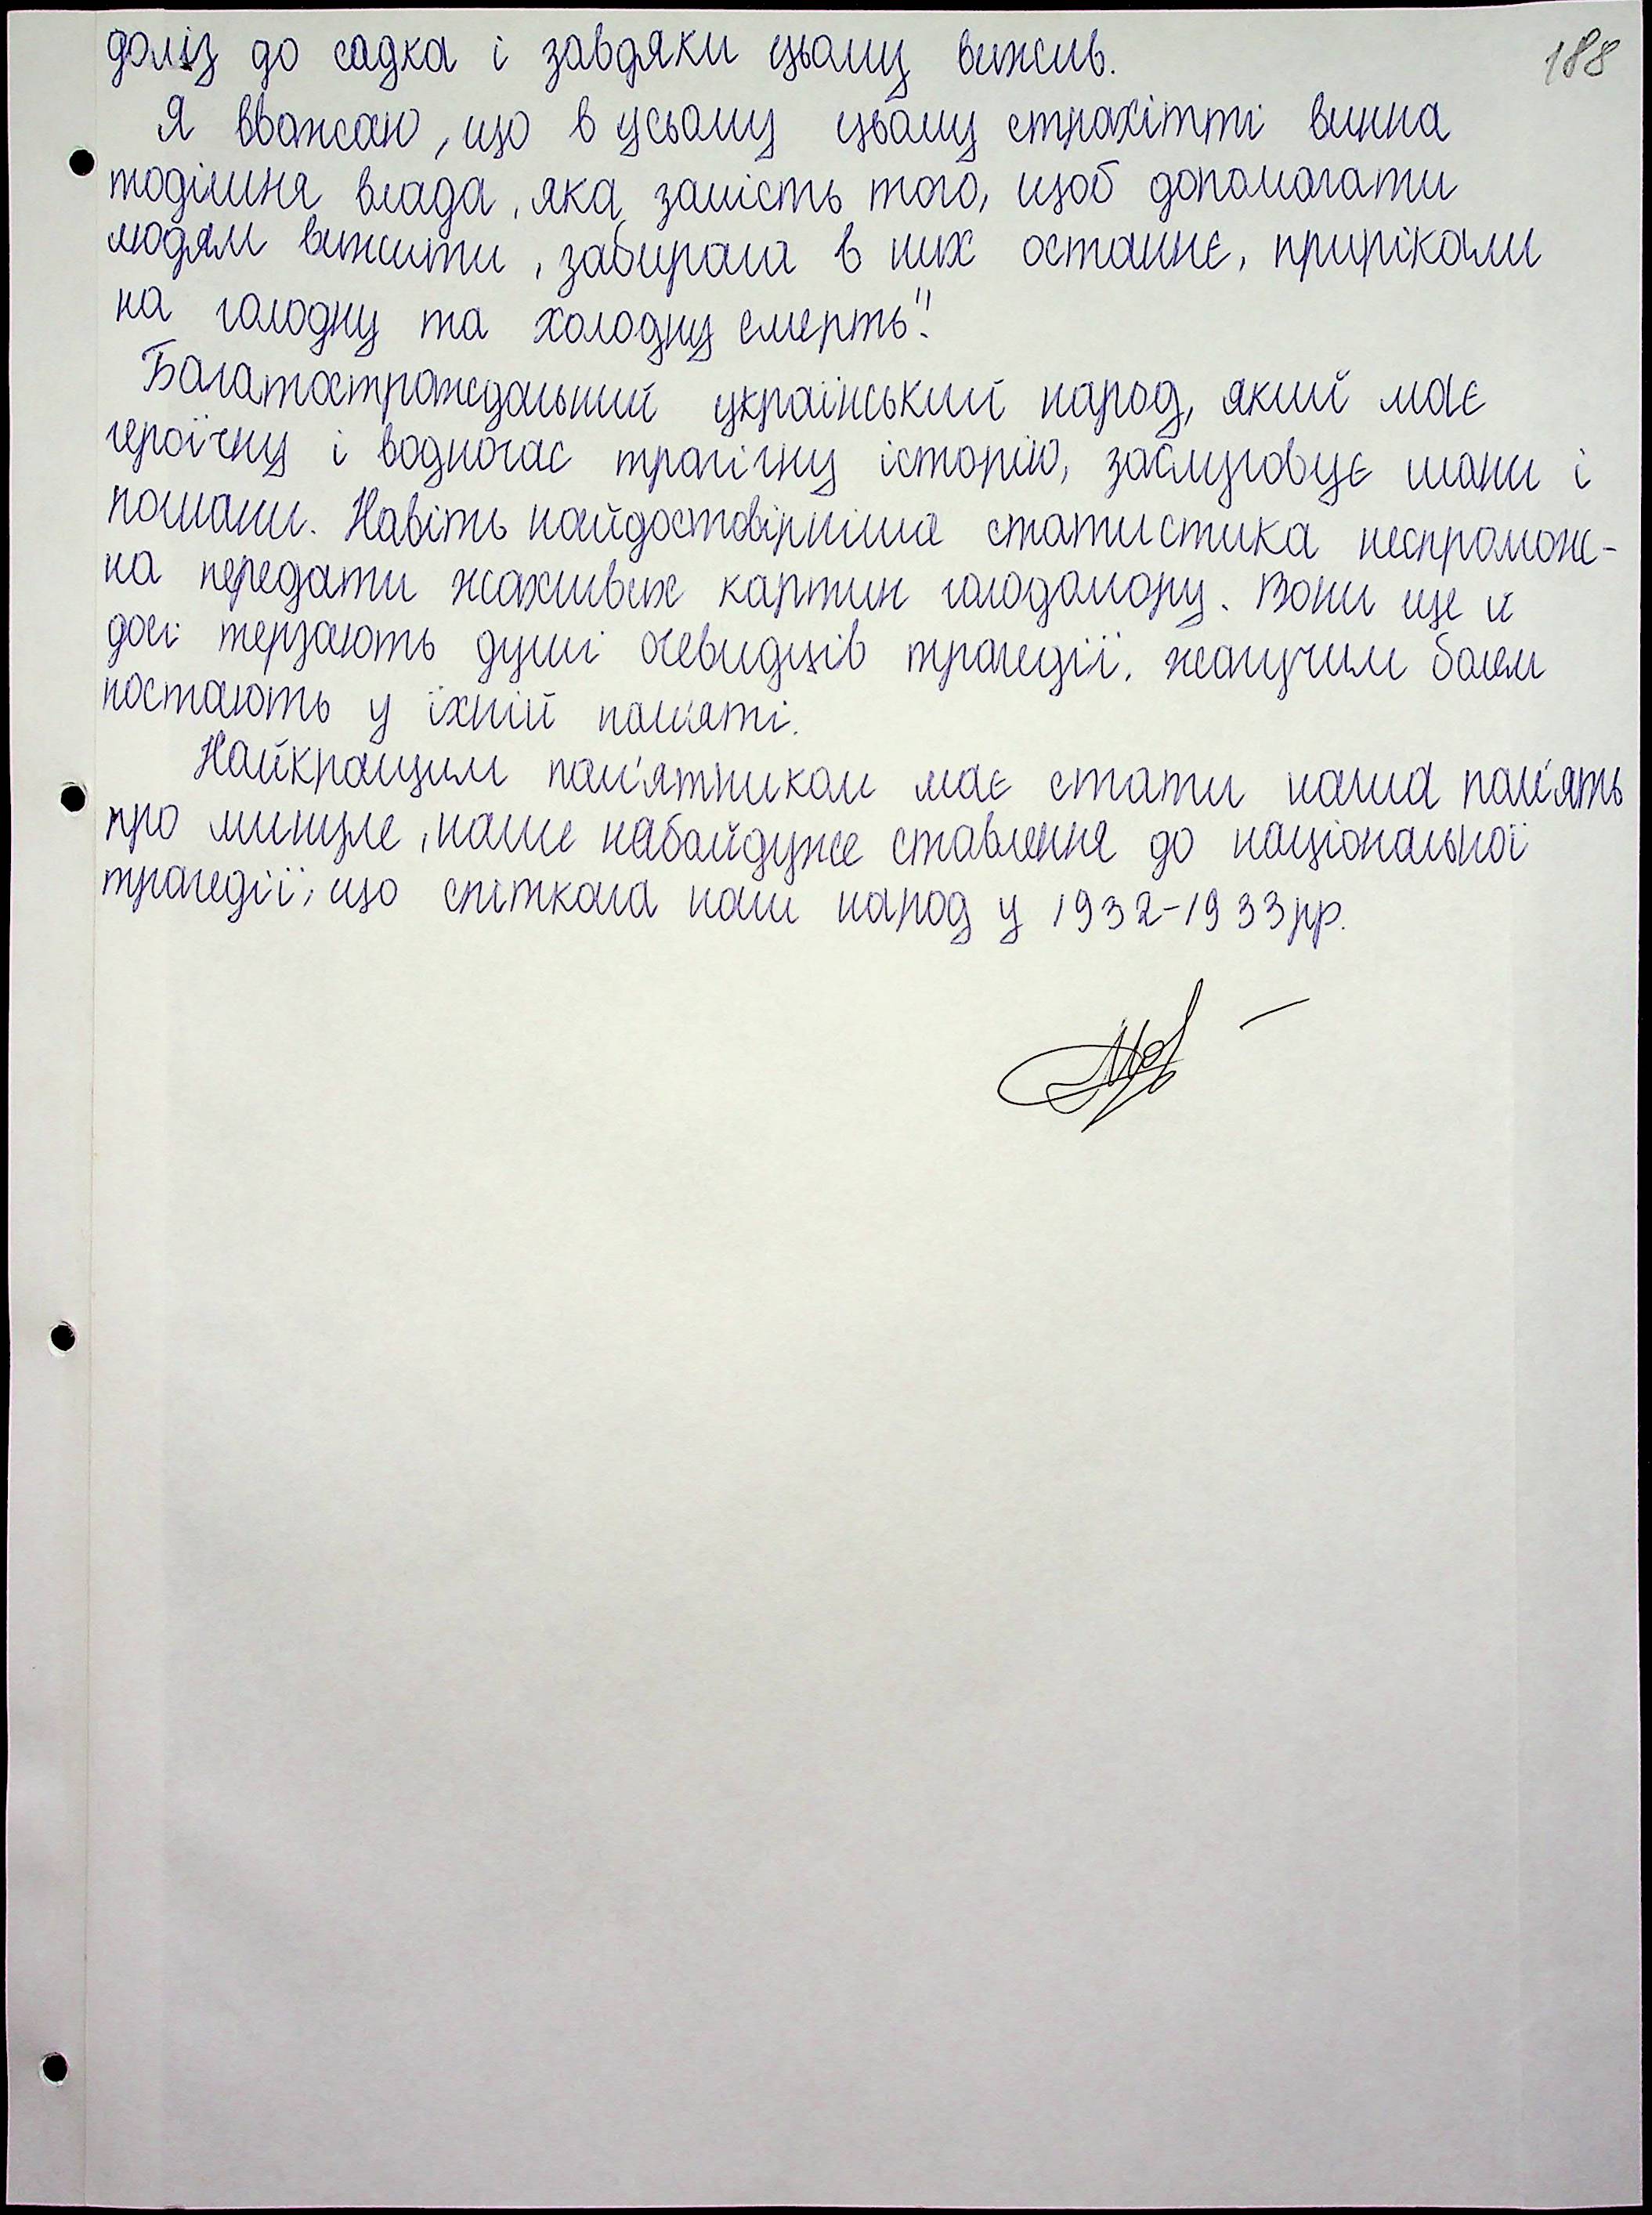 188
доліз до садка і завдяки цьому вижив.
Я вважаю, що в усьому цьому страхітті винна
тодішня влада, яка замість того, щоб допомагати
людям вижити, забирала в них останнє, прирікали
на голодну та холодну смерть".
Багатостраждальний український народ, який має
героїчну і водночас трагічну історію, заслуговує шани і
пошани. Навіть найдостовірніша статистика неспромож-
на передати жахливих картин голодомору. Вони ще й
досі терзають душі очевидців трагедії, жагучим болем
постають у їхній пам'яті.
Найкращим пам'ятником має стати наша пам'ять
про минуле, наше небайдуже ставлення до національної
трагедії, що спіткала наш народ у 1932-1933 рр.